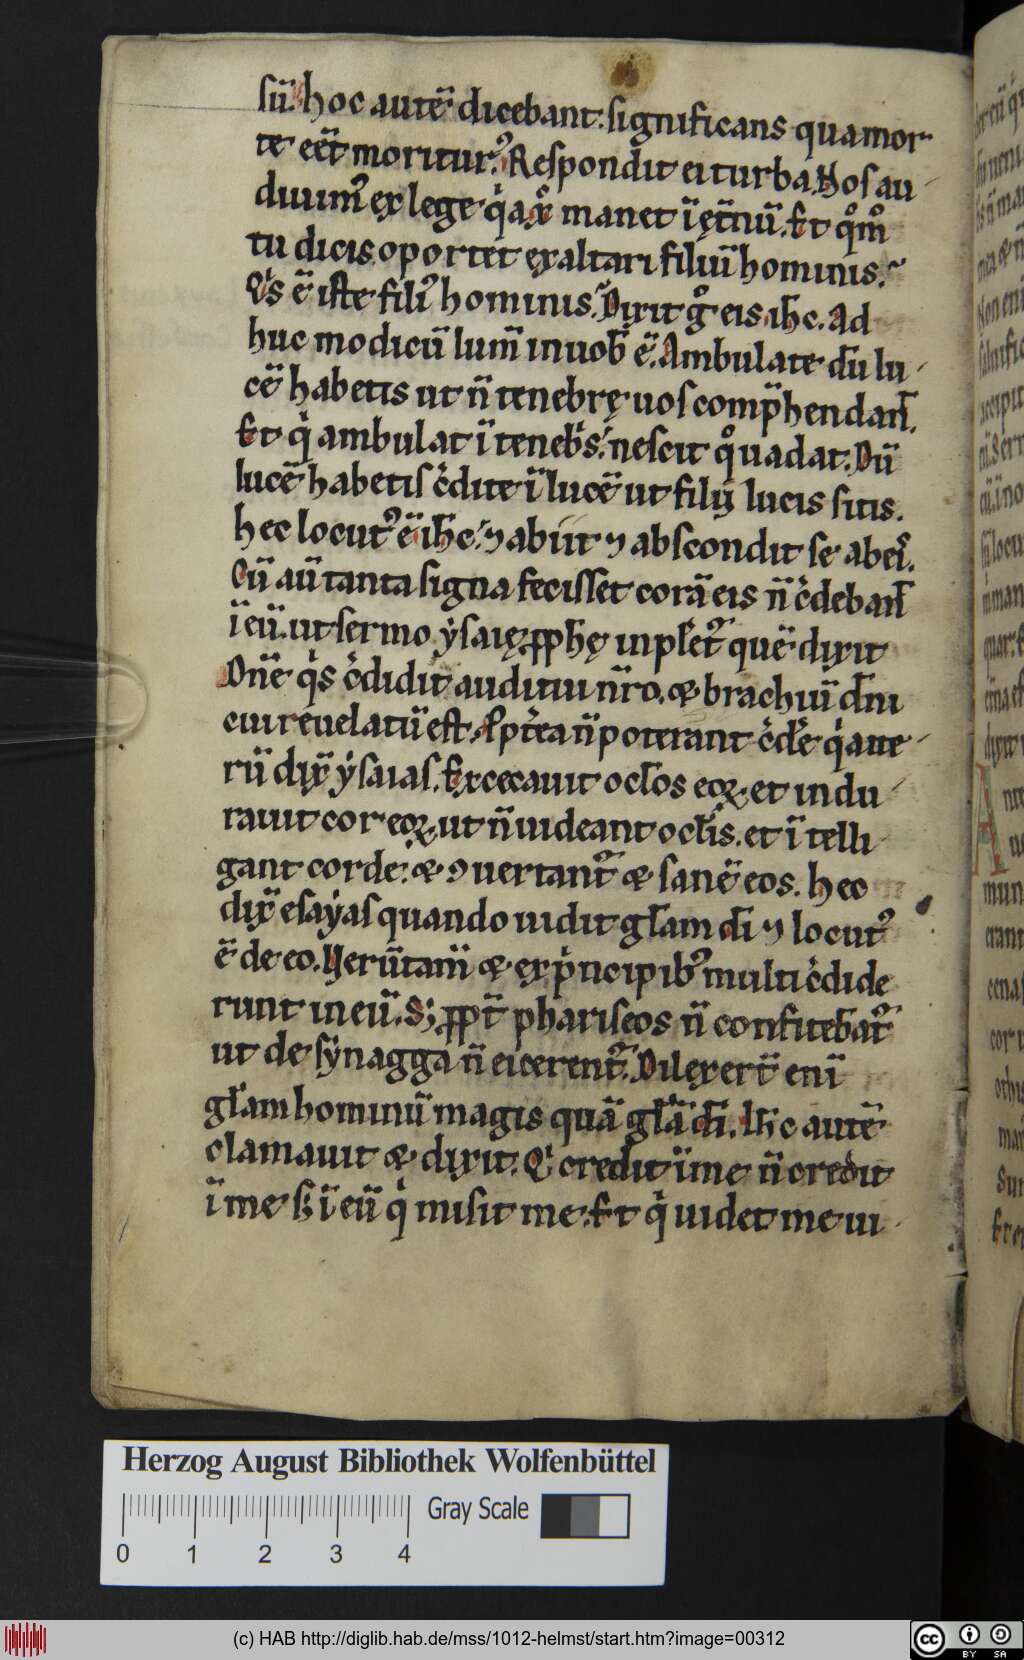 sū. hoc autē dicebant. significans qua mor
te eēt moriturꝰ. Respondit ei turba. Nos au
diuimꝰ ex lege qͥa xp̄c manet ī ęt̄nū. Et qͦmͦ
tu dicis oportet exaltari filiū hominis.
Qͥs ē iste filiꝰ hominis. Dixit gͦ eis ih̄c. Ad
huc modicū lum̄ in uob̄ ē. Ambulate dū lu
cē habetis ut n̄ tenebrę uos comp̄hendant.
Et qͥ ambulat ī tenebͥs. nescit qͦ uadat. Dū
lucē habetis cͤdite ī lucē ut filij lucis sitis.
hec locutꝰ ē ih̄c. ⁊ abiit ⁊ abscondit se ab eiͣ.
Cū aū tanta signa fecisset corā eis n̄ cͤdebant
ī eū. ut sermo ẏsaię ꝓph̄ę inpleͬt᷑ quē dixit
Dn̄e qͥs cͤdidit auditui nr̄o. & brachiū dn̄i
cui reuelatū est. Ppͭea n̄ poterant cͤdeͬ qͥa ite
rū dix̄ ẏsaias. Excecauit oc̄los eoꝝ. et indu
rauit cor eoꝝ. ut n̄ uideant oc̄lis. et ītelli
gant corde. & ꝯuertant᷑ & sanē eos. hec
dix̄ esaẏas quando uidit gl̄am di ⁊ locutꝰ
ē de eo. Verūtam̄ & ex pͥncipibꝰ multi cͤdide
runt in eū. S; ꝓpt̄ phariseos n̄ confitebāt᷑
ut de sẏnagga n̄ eicerent᷑. Dilexert̄ enī
gl̄am hominū magis quā gl̄ā di. Ih̄c autē
clamauit & dixit. Qͥ credit ī me n̄ credit
ī me s; ī eū qͥ misit me. Et qͥ uidet me ui
Herzog August Bibliothek Wolfenbüttel
Gray Scale
0 1 2 3 4
(c) HAB http://diglib.hab.de/mss/1012-helmst/start.htm?image=00312
cc BY SA